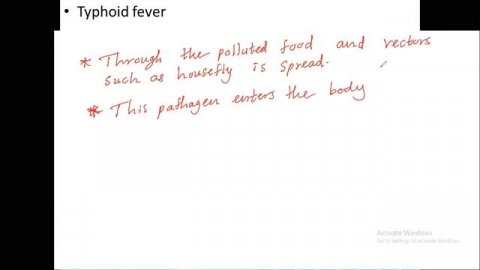 • Typhoid fever
* Through the polluted food and vectors
such as housefly is spread.
* This pathagen enters the body
Activate Windows
Go to Settings to activate Windows.